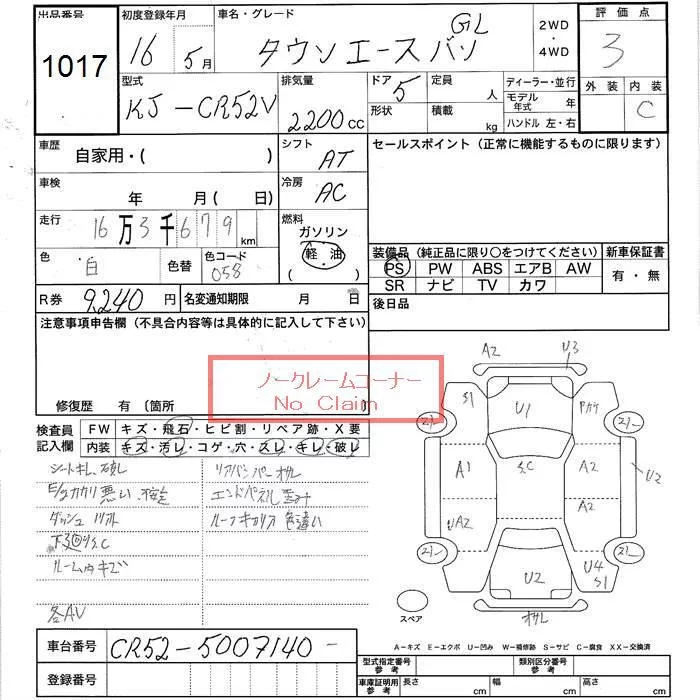 出品番号
1017
初度登録年月
16 5月
車名・グレード
タウンエースバン GL
2WD
・
4WD
評価点
3
外装 内装
C
型式
KJ-CR52V
排気量
2200cc
ドア
5
形状
定員
人
積載
kg
ディーラー・並行
モデル年式 年
ハンドル 左・右
車歴
自家用・( )
シフト
AT
セールスポイント (正常に機能するものに限ります)
車検
年 月( 日)
冷房
AC
走行
16万3千679km
燃料
ガソリン
軽油
( )
色
白
色替
色コード
058
装備品 (純正品に限り○をつけてください)
PS PW ABS エアB AW
SR ナビ TV カワ
新車保証書
有・無
R券 9,240円
名変通知期限 月 日
後日品
注意事項申告欄 (不具合内容等は具体的に記入して下さい)
ノークレームコーナー
No Claim
修復歴 有 〔箇所
検査員
記入欄
FW キズ・飛石・ヒビ割・リペア跡・X要
内装 キズ・汚レ・コゲ・穴・スレ・キレ・破レ
シートキレ、破レ
E/gカカリ悪い、不安定
ダッシュ
下廻りS.C
ルーム内キズ
各AV
リアバンパーオサレ
エンドパネル歪み
ルーフキャリア色違い
A2 U3
S1 U1 Pカケ
A1 S.C A2 U2
UA2 A2
U2 U4
S1
オサレ
スペア
A-キズ E-エクボ U-凹み W-補修跡 S-サビ C-腐食 XX-交換済
車台番号 CR52-5007140-
登録番号
型式指定番号
参考
類別区分番号
参考
車庫証明用
参考
長さ cm
幅 cm
高さ cm